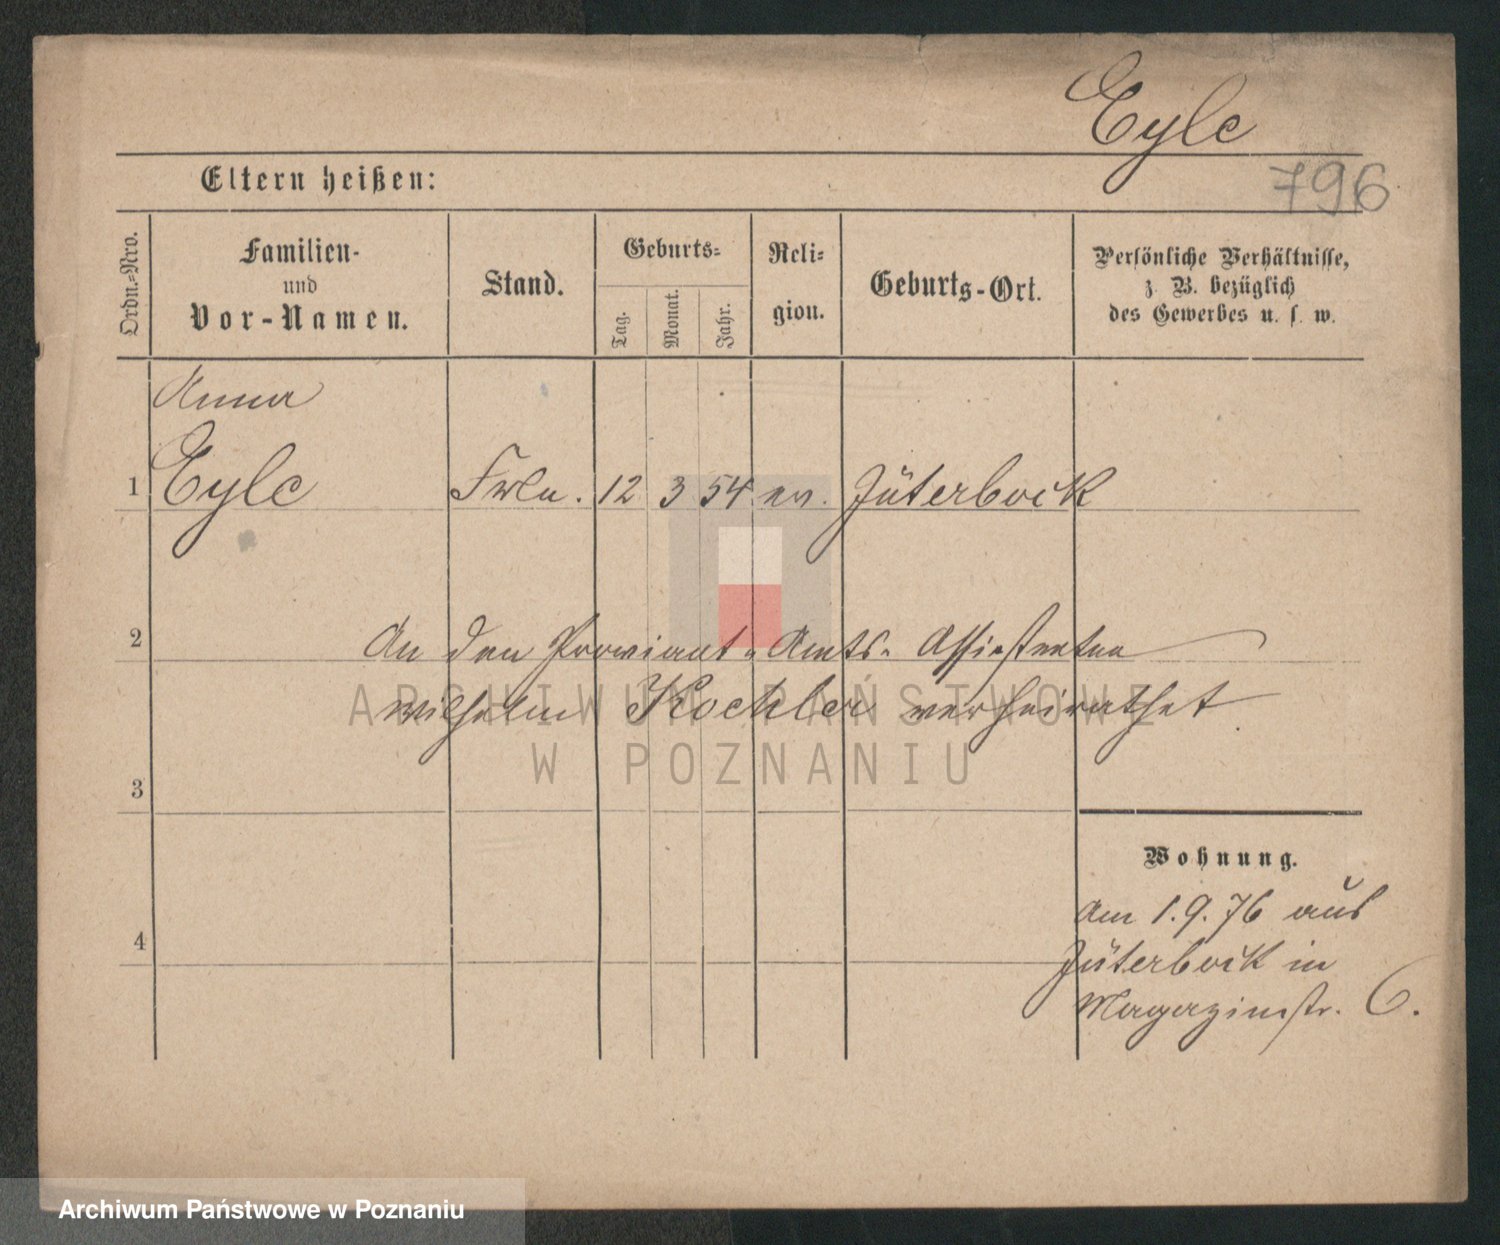 Eyle
796
Eltern heißen:
Ordn.-Nro.
Familien-
und
Vor-Namen.
Stand.
Geburts-
Tag.
Monat.
Jahr.
Reli-
gion.
Geburts-Ort.
Persönliche Verhältnisse,
z. B. bezüglich
des Gewerbes u. s. w.
Anna
1 Eyle Frln. 12 3 54 ev. Jüterbock
2
An den Proviant-Amts-Assistenten
Wilhelm Kochler verheirathet
3
Wohnung.
Am 1.9.76 aus
Jüterbock in
Magazinstr. 6.
4
ARCHIWUM PAŃSTWOWE
W POZNANIU
Archiwum Państwowe w Poznaniu